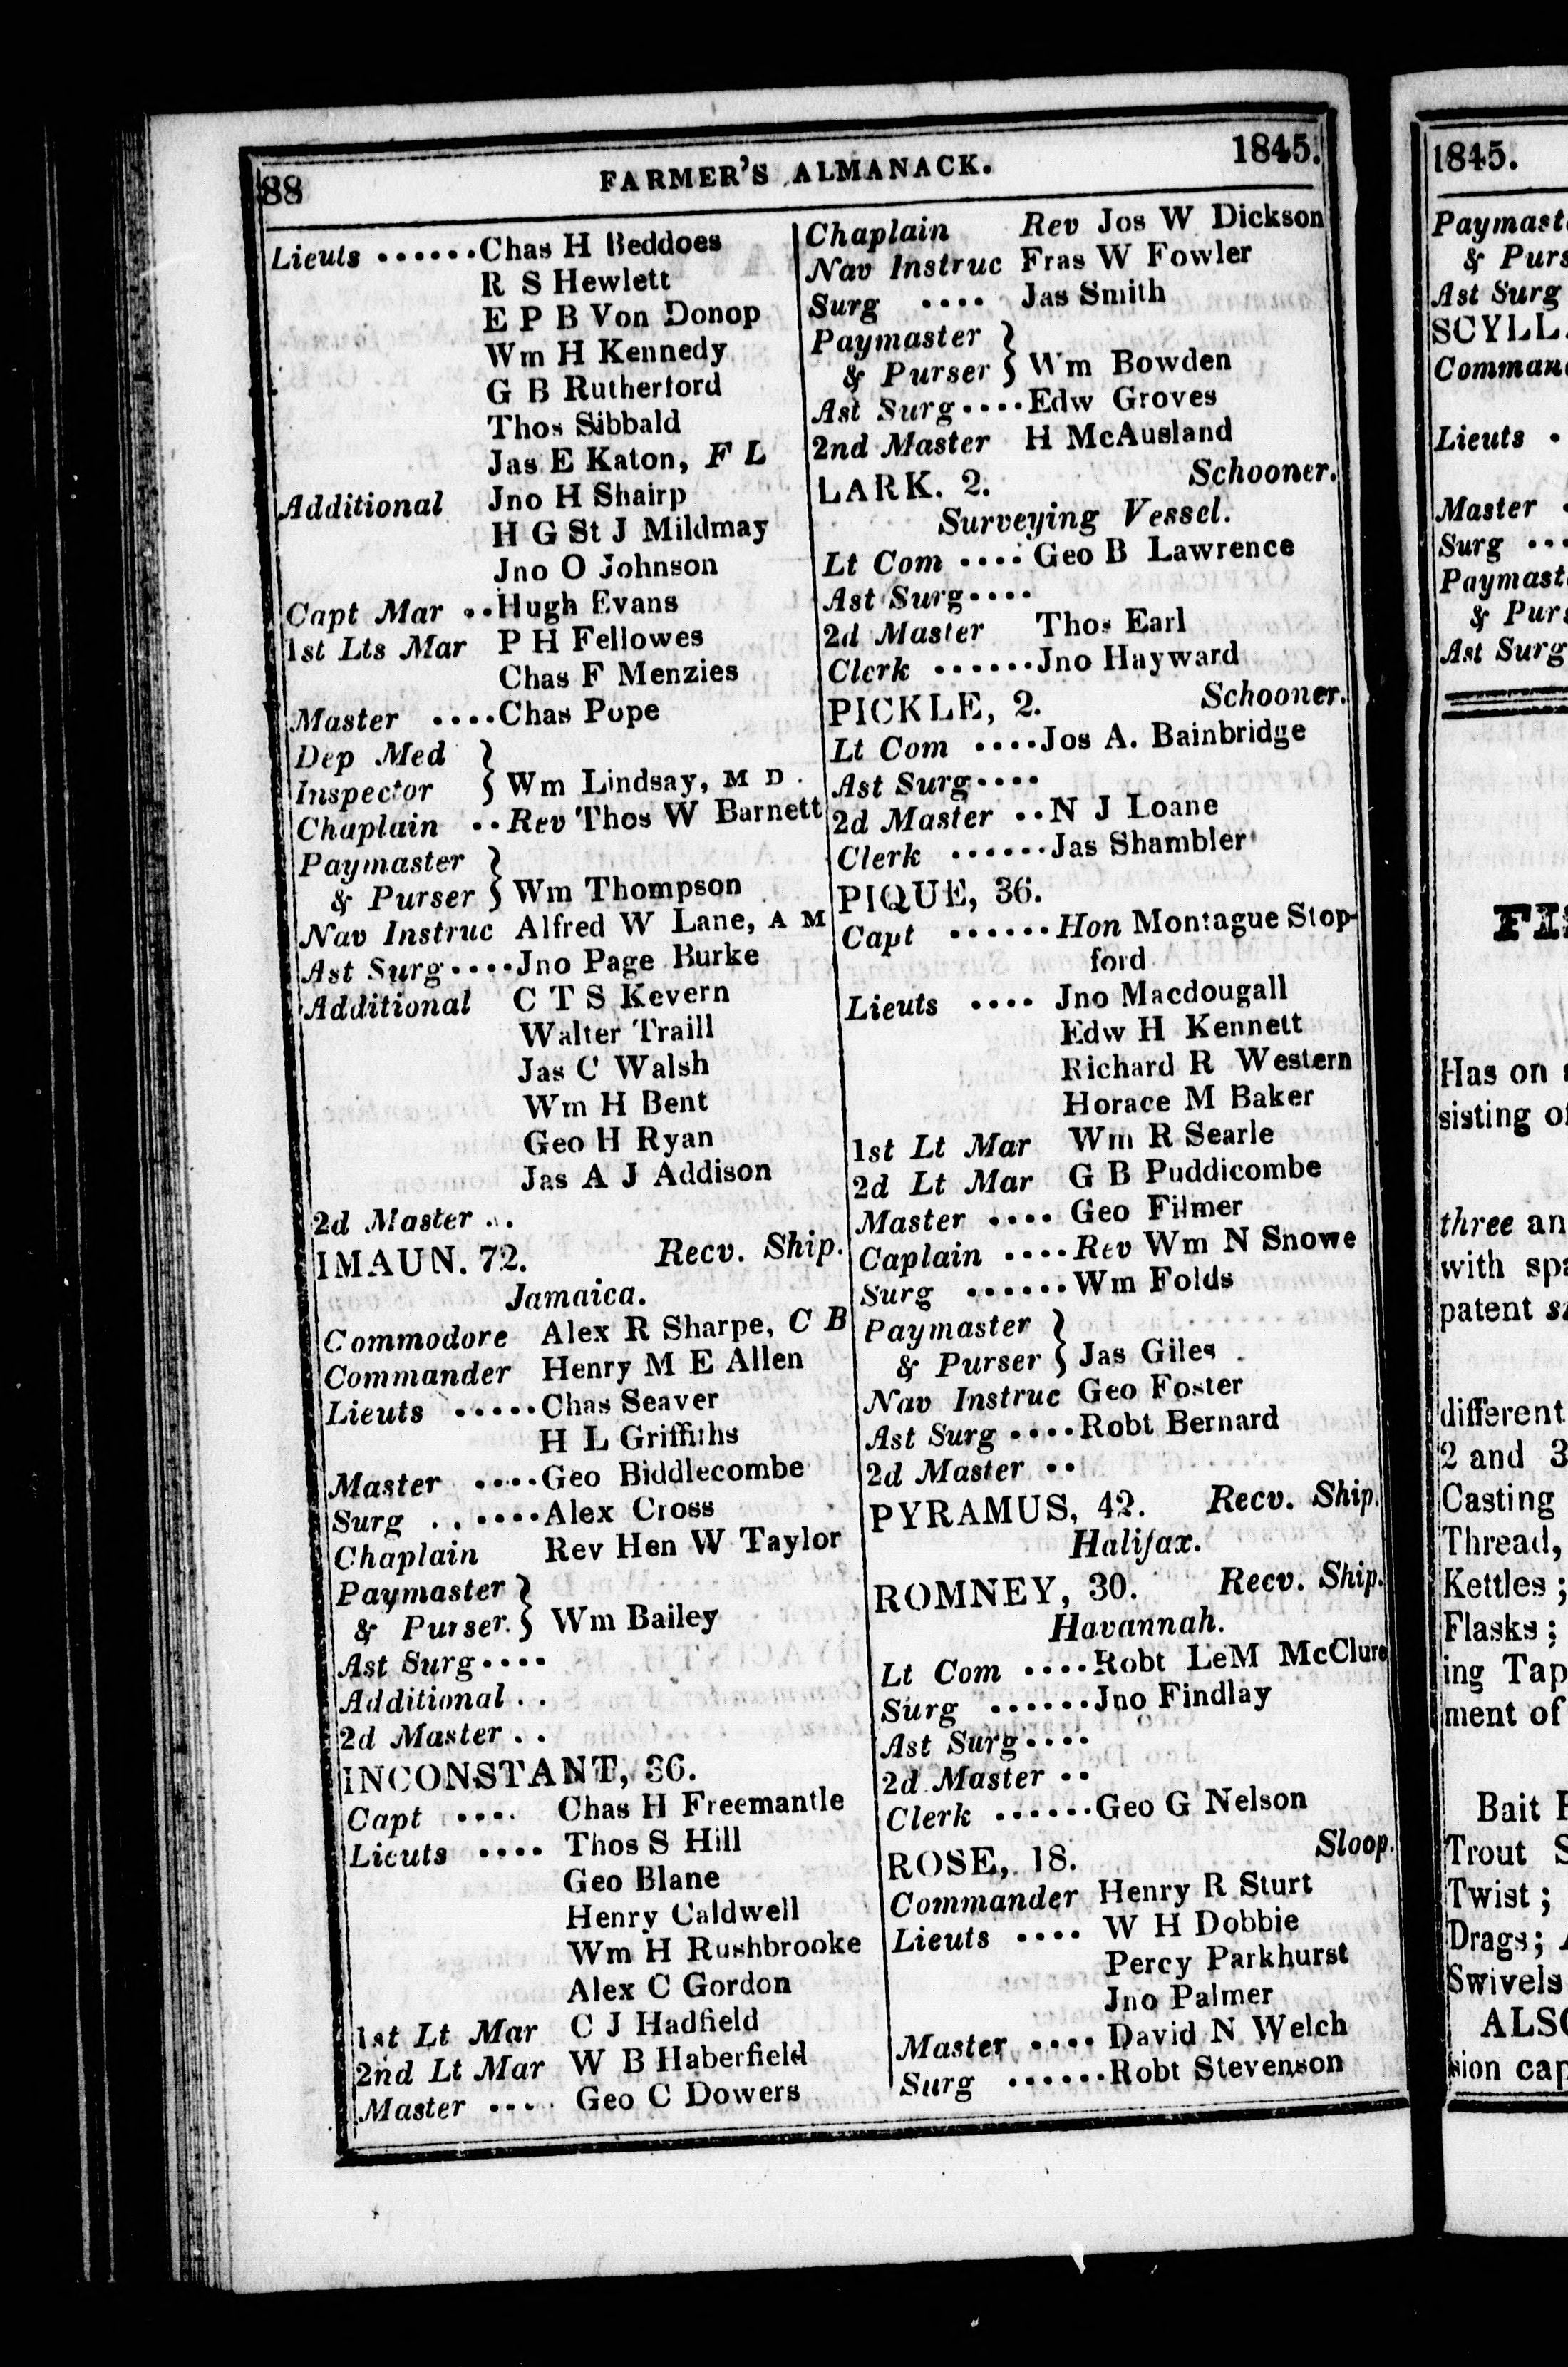 88 FARMER'S ALMANACK. 1845.
Lieuts ······Chas H Beddoes
R S Hewlett
E P B Von Donop
Wm H Kennedy
G B Rutherford
Thos Sibbald
Jas E Katon, F L
Additional Jno H Shairp
H G St J Mildmay
Jno O Johnson
Capt Mar ··Hugh Evans
1st Lts Mar P H Fellowes
Chas F Menzies
Master ····Chas Pope
Dep Med }
Inspector } Wm Lindsay, M D.
Chaplain ··Rev Thos W Barnett
Paymaster }
& Purser } Wm Thompson
Nav Instruc Alfred W Lane, A M
Ast Surg····Jno Page Burke
Additional C T S Kevern
Walter Traill
Jas C Walsh
Wm H Bent
Geo H Ryan
Jas A J Addison
2d Master ..
IMAUN. 72. Recv. Ship.
Jamaica.
Commodore Alex R Sharpe, C B
Commander Henry M E Allen
Lieuts ·····Chas Seaver
H L Griffiths
Master ····Geo Biddlecombe
Surg ......Alex Cross
Chaplain Rev Hen W Taylor
Paymaster }
& Purser. } Wm Bailey
Ast Surg····
Additional..
2d Master..
INCONSTANT, 36.
Capt .... Chas H Freemantle
Lieuts .... Thos S Hill
Geo Blane
Henry Caldwell
Wm H Rushbrooke
Alex C Gordon
1st Lt Mar C J Hadfield
2nd Lt Mar W B Haberfield
Master .... Geo C Dowers
Chaplain Rev Jos W Dickson
Nav Instruc Fras W Fowler
Surg .... Jas Smith
Paymaster }
& Purser } Wm Bowden
Ast Surg····Edw Groves
2nd Master H McAusland
LARK. 2. Schooner.
Surveying Vessel.
Lt Com ····Geo B Lawrence
Ast Surg····
2d Master Thos Earl
Clerk ······Jno Hayward
PICKLE, 2. Schooner.
Lt Com ····Jos A. Bainbridge
Ast Surg····
2d Master ··N J Loane
Clerk ······Jas Shambler
PIQUE, 36.
Capt ······Hon Montague Stop-
ford
Lieuts .... Jno Macdougall
Edw H Kennett
Richard R Western
Horace M Baker
1st Lt Mar Wm R Searle
2d Lt Mar G B Puddicombe
Master .... Geo Filmer
Caplain ····Rev Wm N Snowe
Surg ······Wm Folds
Paymaster }
& Purser } Jas Giles
Nav Instruc Geo Foster
Ast Surg····Robt Bernard
2d Master ··
PYRAMUS, 42. Recv. Ship.
Halifax.
ROMNEY, 30. Recv. Ship.
Havannah.
Lt Com ····Robt LeM McClure
Surg ······Jno Findlay
Ast Surg····
2d Master ··
Clerk ······Geo G Nelson
ROSE, 18. Sloop.
Commander Henry R Sturt
Lieuts .... W H Dobbie
Percy Parkhurst
Jno Palmer
Master .... David N Welch
Surg ······Robt Stevenson
1845.
& Purs
Ast Surg
Lieuts ·
Master
Surg ···
& Purs
Ast Surg
Has on
sisting of
three an
with
patent
different
2 and 3
Casting
Thread,
Kettles;
Flasks;
ing
ment of
Bait
Trout
Twist;
Drags;
Swivels
ALSO